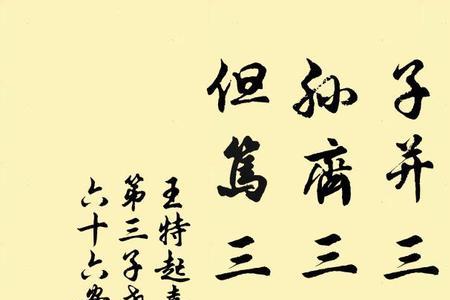 子并三
孙齊三
但篤三
王特起
第三子
六十六